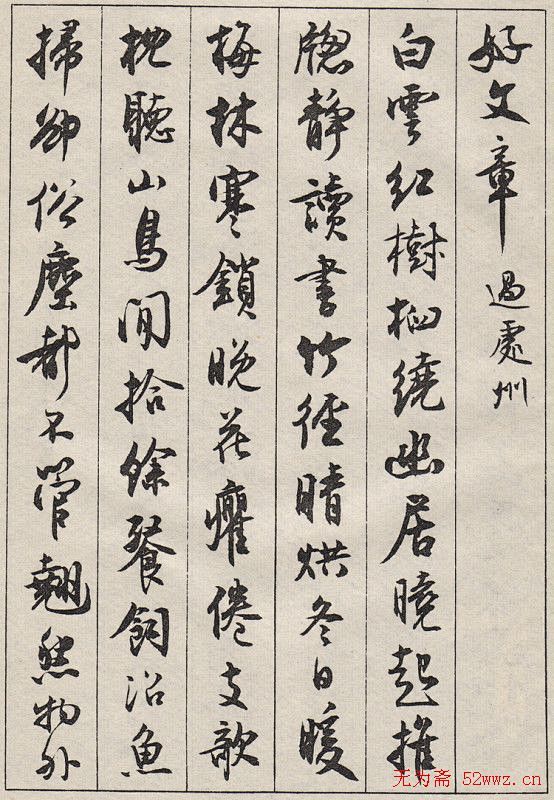 好文章 過處州
白雲紅樹相繞幽居曉起推
牕靜讀書竹徑晴烘冬日暖
梅林寒鎖晚花癯倦支欹
枕聽山鳥閒拾餘餐飼沼魚
掃卻俗塵都不管翹然物外
无为斋 52wwz.cn